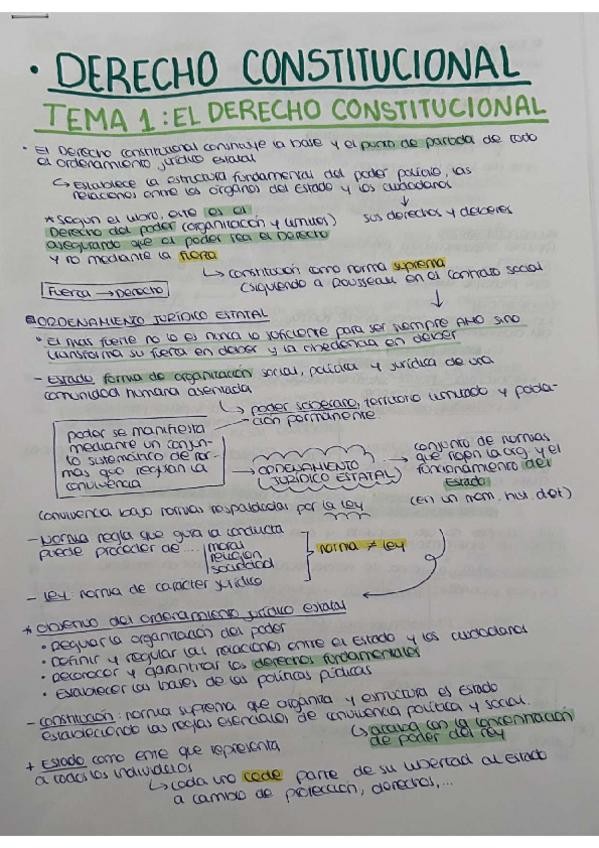 · DERECHO CONSTITUCIONAL
TEMA 1: EL DERECHO CONSTITUCIONAL
· El Derecho constitucional constituye la base y el punto de partida de todo
el ordenamiento jurídico estatal
↳ Establece la estructura fundamental del poder político, las
relaciones entre los órganos del Estado y los ciudadanos
↓
sus derechos y deberes
* Según el libro, este es el
Derecho del poder (organización y límites)
asegurando que el poder sea el Derecho
y no mediante la fuerza
↳ constitución como norma suprema
(siguiendo a Rousseau en el contrato social
Fuerza → Derecho
ORDENAMIENTO JURÍDICO ESTATAL
"El más fuerte no lo es nunca lo suficiente para ser siempre AMO sino
transforma su fuerza en deber y la obediencia en deber
- Estado: forma de organización social, política y jurídica de una
comunidad humana asentada
↳ poder soberano, territorio limitado y pobla-
ción permanente.
poder se manifiesta
mediante un conjun-
to sistemático de nor-
mas que regulan la
convivencia
→ ORDENAMIENTO
JURÍDICO ESTATAL
→ conjunto de normas
que rigen la org. y el
funcionamiento del
Estado
(en un mom. his. det)
convivencia bajo normas respaldadas por la ley
- Norma: regla que guía la conducta
puede proceder de ...
moral
religión
sociedad
norma ≠ ley
- Ley: norma de carácter jurídico
* Objetivo del ordenamiento jurídico estatal
· Regular la organización del poder
· Definir y regular las relaciones entre el Estado y los ciudadanos
· Reconocer y garantizar los derechos fundamentales
· Establecer las bases de las políticas púdicas
- Constitución: norma suprema que organiza y estructura el Estado
estableciendo las reglas esenciales de convivencia política y social.
↳ acaba con la concentración
de poder del rey
+ Estado como ente que representa
a todos los individuos
↳ cada uno cede parte de su libertad al Estado
a cambio de protección, derechos,...